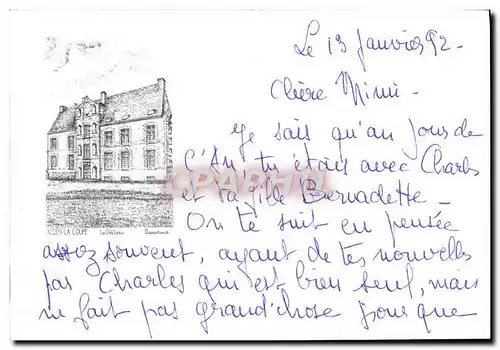 Le 13 Janvier 92 -
Chère Mimi -
Je sais qu'au Jour de
l'An tu étais avec Charles
et ta fille Bernadette -
On te suit en pensée
assez souvent, ayant de tes nouvelles
par Charles qui est bien seul, mais
ne fait pas grand'chose pour que
LA LOUPE Le Château